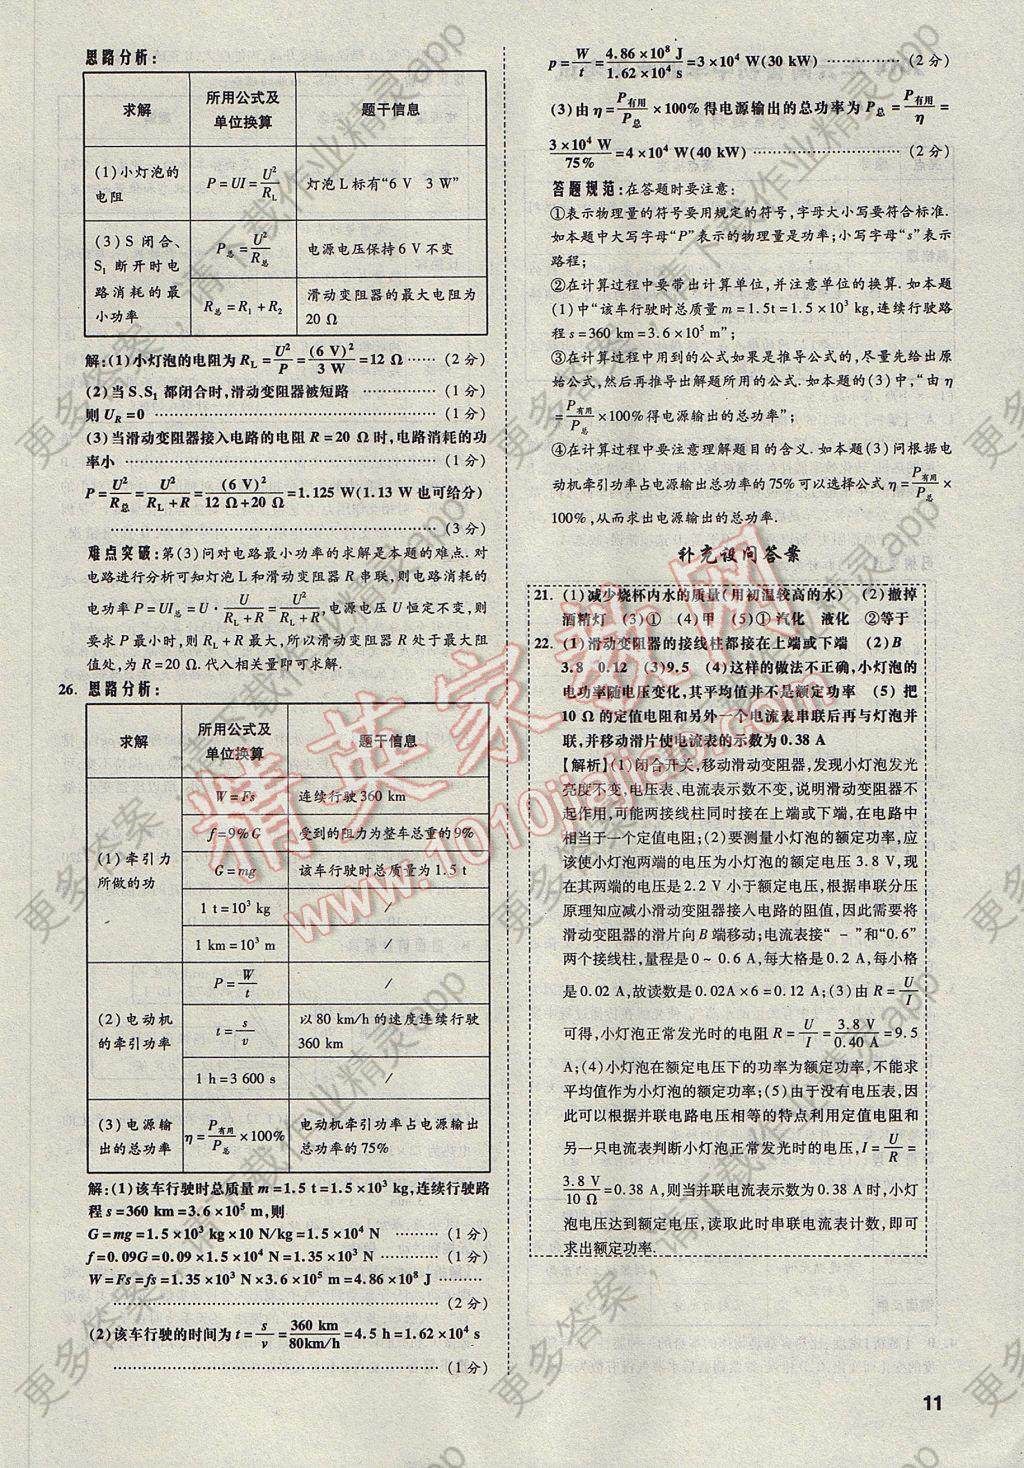 思路分析：
求解 所用公式及单位换算 题干信息
(1)小灯泡的电阻 P=UI=U²/R_L 灯泡 L 标有“6 V 3 W”
(3) S 闭合、S₁ 断开时电路消耗的最小功率 P总=U²/R总 电源电压保持 6 V 不变
R总=R₁+R₂ 滑动变阻器的最大电阻为 20 Ω
解:(1)小灯泡的电阻为 R_L=U²/P=(6 V)²/3 W=12 Ω ……(2 分)
(2)当 S、S₁ 都闭合时,滑动变阻器被短路 ……(1 分)
则 U_R=0 ……(1 分)
(3)当滑动变阻器接入电路的电阻 R=20 Ω 时,电路消耗的功
率小 ……(1 分)
P=U²/R总=U²/(R_L+R)=(6 V)²/(12 Ω+20 Ω)=1.125 W(1.13 W 也可给分)
……(3 分)
难点突破:第(3)问对电路最小功率的求解是本题的难点. 对
电路进行分析可知灯泡 L 和滑动变阻器 R 串联,则电路消耗
的电功率 P=UI总=U·U/(R_L+R)=U²/(R_L+R),电源电压 U 恒定不变,则
要求 P 最小时,则 R_L+R 最大,所以滑动变阻器 R 处于最大阻
值处,为 R=20 Ω. 代入相关量即可求解.
26. 思路分析：
求解 所用公式及单位换算 题干信息
(1) 牵引力所做的功 W=Fs 连续行驶 360 km
f=9%G 受到的阻力为整车总重的 9%
G=mg 该车行驶时总质量为 1.5 t
1 t=10³ kg /
1 km=10³ m /
(2) 电动机的牵引功率 P=W/t /
t=s/v 以 80 km/h 的速度连续行驶 360 km
1 h=3 600 s /
(3) 电源输出的总功率 η=P有用/P总×100% 电动机牵引功率占电源输出总功率的 75%
解:(1)该车行驶时总质量 m=1.5 t=1.5×10³ kg,连续行驶路
程 s=360 km=3.6×10⁵ m,则
G=mg=1.5×10³ kg×10 N/kg=1.5×10⁴ N ……(1 分)
f=0.09G=0.09×1.5×10⁴ N=1.35×10³ N ……(1 分)
W=Fs=fs=1.35×10³ N×3.6×10⁵ m=4.86×10⁸ J ……
……(2 分)
(2)该车行驶的时间为 t=s/v=360 km/80km/h=4.5 h=1.62×10⁴ s
……(1 分)
p=W/t=4.86×10⁸ J/1.62×10⁴ s=3×10⁴ W(30 kW) ……(2 分)
(3)由 η=P有用/P总×100%得电源输出的总功率为 P总=P有用/η=
3×10⁴ W/75%=4×10⁴ W(40 kW) ……(2 分)
答题规范:在答题时要注意:
①表示物理量的符号要用规定的符号,字母大小写要符合标准.
如本题中大写字母“P”表示的物理量是功率;小写字母“s”表示
路程;
②在计算过程中要带出计算单位,并注意单位的换算. 如本题
(1)中“该车行驶时总质量 m=1.5t=1.5×10³ kg,连续行驶路
程 s=360 km=3.6×10⁵ m”;
③在计算过程中用到的公式如果是推导公式的,尽量先给出原
始公式,然后再推导出解题所用的公式. 如本题的(3)中,“由 η
=P有用/P总×100%得电源输出的总功率”;
④在计算过程中要注意理解题目的含义. 如本题(3)问根据电
动机牵引功率占电源输出总功率的 75%可以选择公式 η=P有用/P总×
100%,从而求出电源输出的总功率.
补充设问答案
21. (1)减少烧杯内水的质量(用初温较高的水) (2)撤掉
酒精灯 (3)① (4)甲 (5)①汽化 液化 ②等于
22. (1)滑动变阻器的接线柱都接在上端或下端 (2)B
3.8 0.12 (3)9.5 (4)这样的做法不正确,小灯泡的
电功率随电压变化,其平均值并不是额定功率 (5) 把
10 Ω 的定值电阻和另外一个电流表串联后再与灯泡并
联,并移动滑片使电流表的示数为 0.38 A
【解析】(1)闭合开关,移动滑动变阻器,发现小灯泡发光
亮度不变,电压表、电流表示数不变,说明滑动变阻器不
起作用,可能两接线柱同时接在上端或下端,在电路中
相当于一个定值电阻;(2)要测量小灯泡的额定功率,应
该使小灯泡两端的电压为小灯泡的额定电压 3.8 V,现
在其两端的电压是 2.2 V 小于额定电压,根据串联分压
原理知应减小滑动变阻器接入电路的阻值,因此需要将
滑动变阻器的滑片向 B 端移动;电流表接“－”和“0.6”
两个接线柱,量程是 0～0.6 A,每大格是 0.2 A,每小格
是 0.02 A,故读数是 0.02A×6=0.12 A;(3)由 R=U/I
可得,小灯泡正常发光时的电阻 R=U/I=3.8 V/0.40 A=9.5
A;(4)小灯泡在额定电压下的功率为额定功率,不能求
平均值作为小灯泡的额定功率;(5)由于没有电压表,因
此可以根据并联电路电压相等的特点利用定值电阻和
另一只电流表判断小灯泡正常发光时的电压,I=U/R=
3.8 V/10 Ω=0.38 A,则当并联电流表示数为 0.38 A 时,小灯
泡电压达到额定电压,读取此时串联电流表计数,即可
求出额定功率.
11
精英家教网
www.1010jiajiao.com
更多答案,请下载作业精灵app